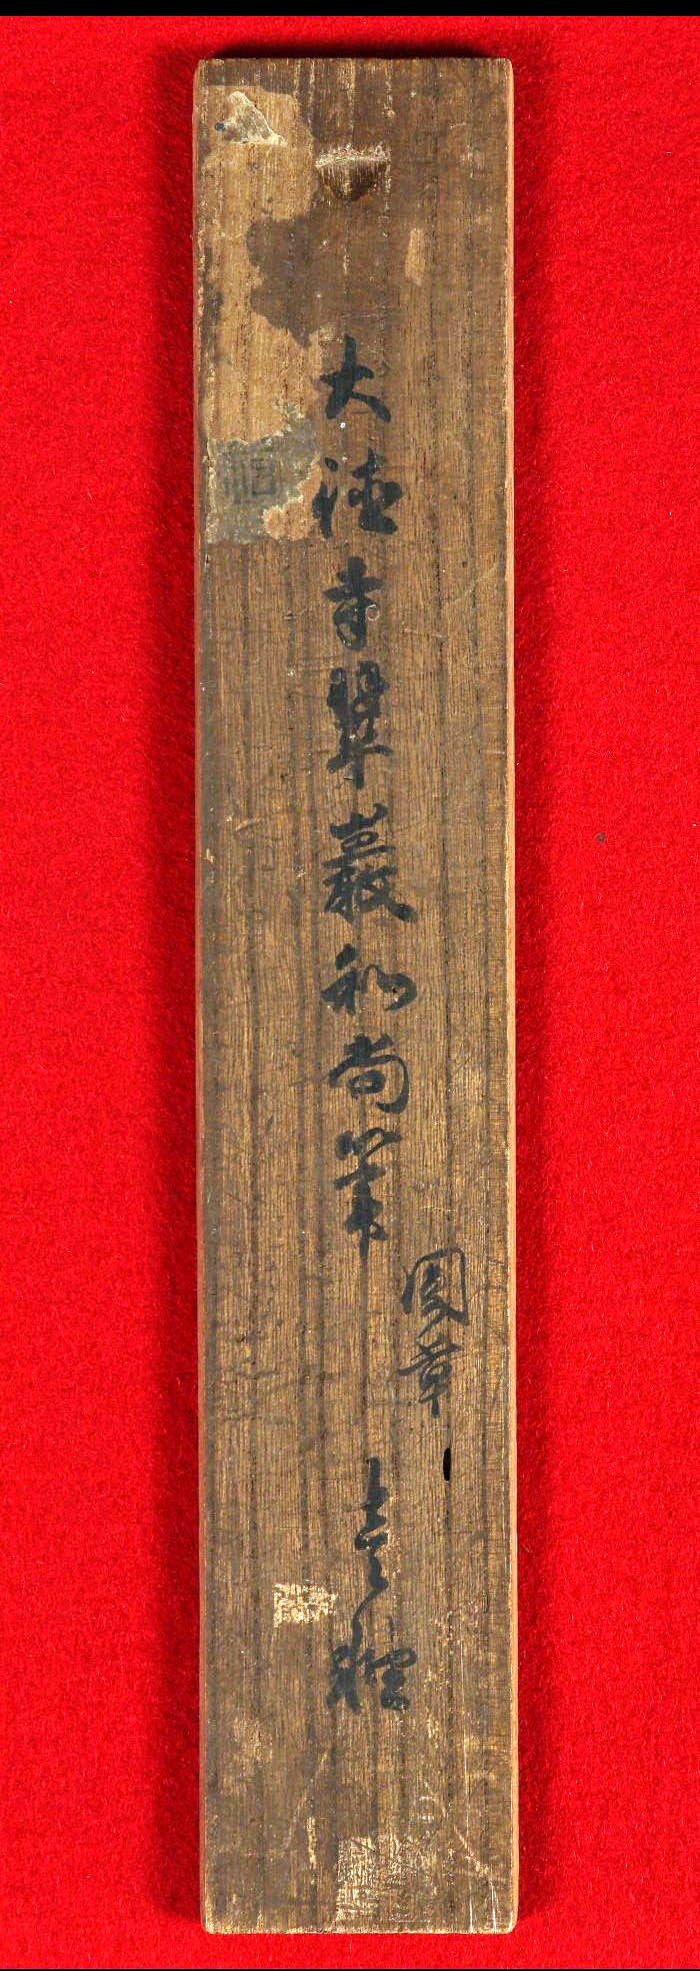 大徳寺翠巌和尚筆
圓章
壱軸